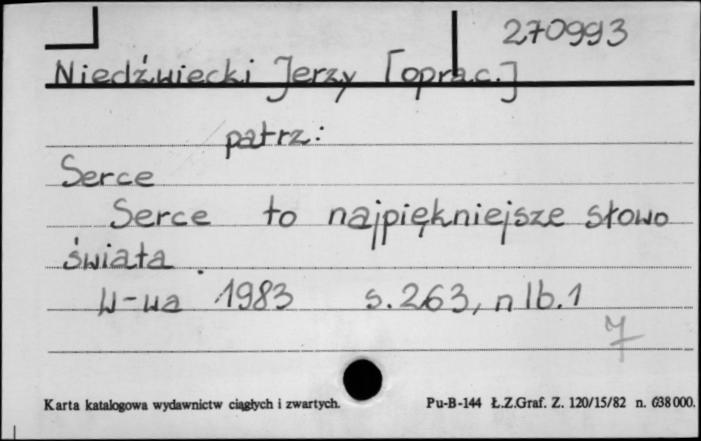 270993
Niedźwiecki Jerzy [oprac.]
patrz:
Serce
Serce to najpiękniejsze słowo
świata.
W-wa 1983 s. 263, nlb. 1
7
Karta katalogowa wydawnictw ciągłych i zwartych. Pu-B-144 Ł.Z.Graf. Z. 120/15/82 n. 638000.